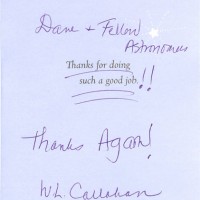 Dave + Fellow
Astronomers
Thanks for doing
such a good job.!!
Thanks Again!
W.L. Callahan